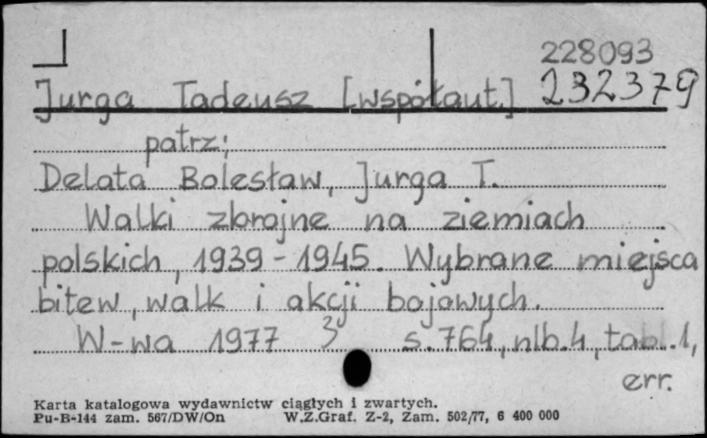 228093
Jurga Tadeusz [współaut.] 232379
patrz:
Delata Bolesław, Jurga T.
Walki zbrojne na ziemiach
polskich, 1939-1945. Wybrane miejsca
bitew, walk i akcji bojowych.
W-wa 1977 3 s. 764, nlb. 4, tabl. 1,
err.
Karta katalogowa wydawnictw ciągłych i zwartych.
Pu-B-144 zam. 567/DW/On W.Z.Graf. Z-2, Zam. 502/77, 6 400 000